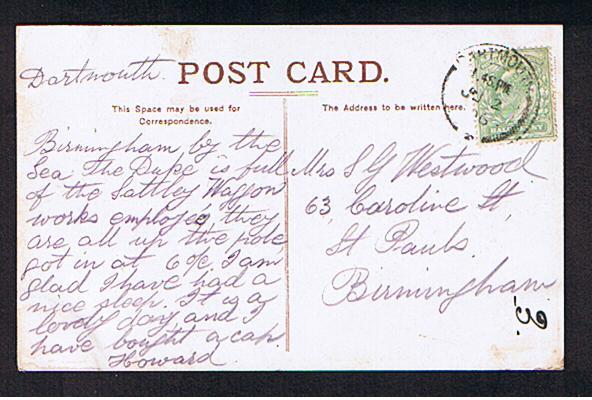 Dartmouth.
POST CARD.
This Space may be used for
Correspondence.
The Address to be written here.
DARTMOUTH
Birmingham by the
Sea The Duke is full
of the Saltley Waggon
works employees they
are all up the pole
got in at 6 o/c. I am
glad I have had a
nice sleep. It is a
lovely day and I
have bought a cap.
Howard
Mrs S G Westwood
63, Caroline St,
St Pauls.
Birmingham